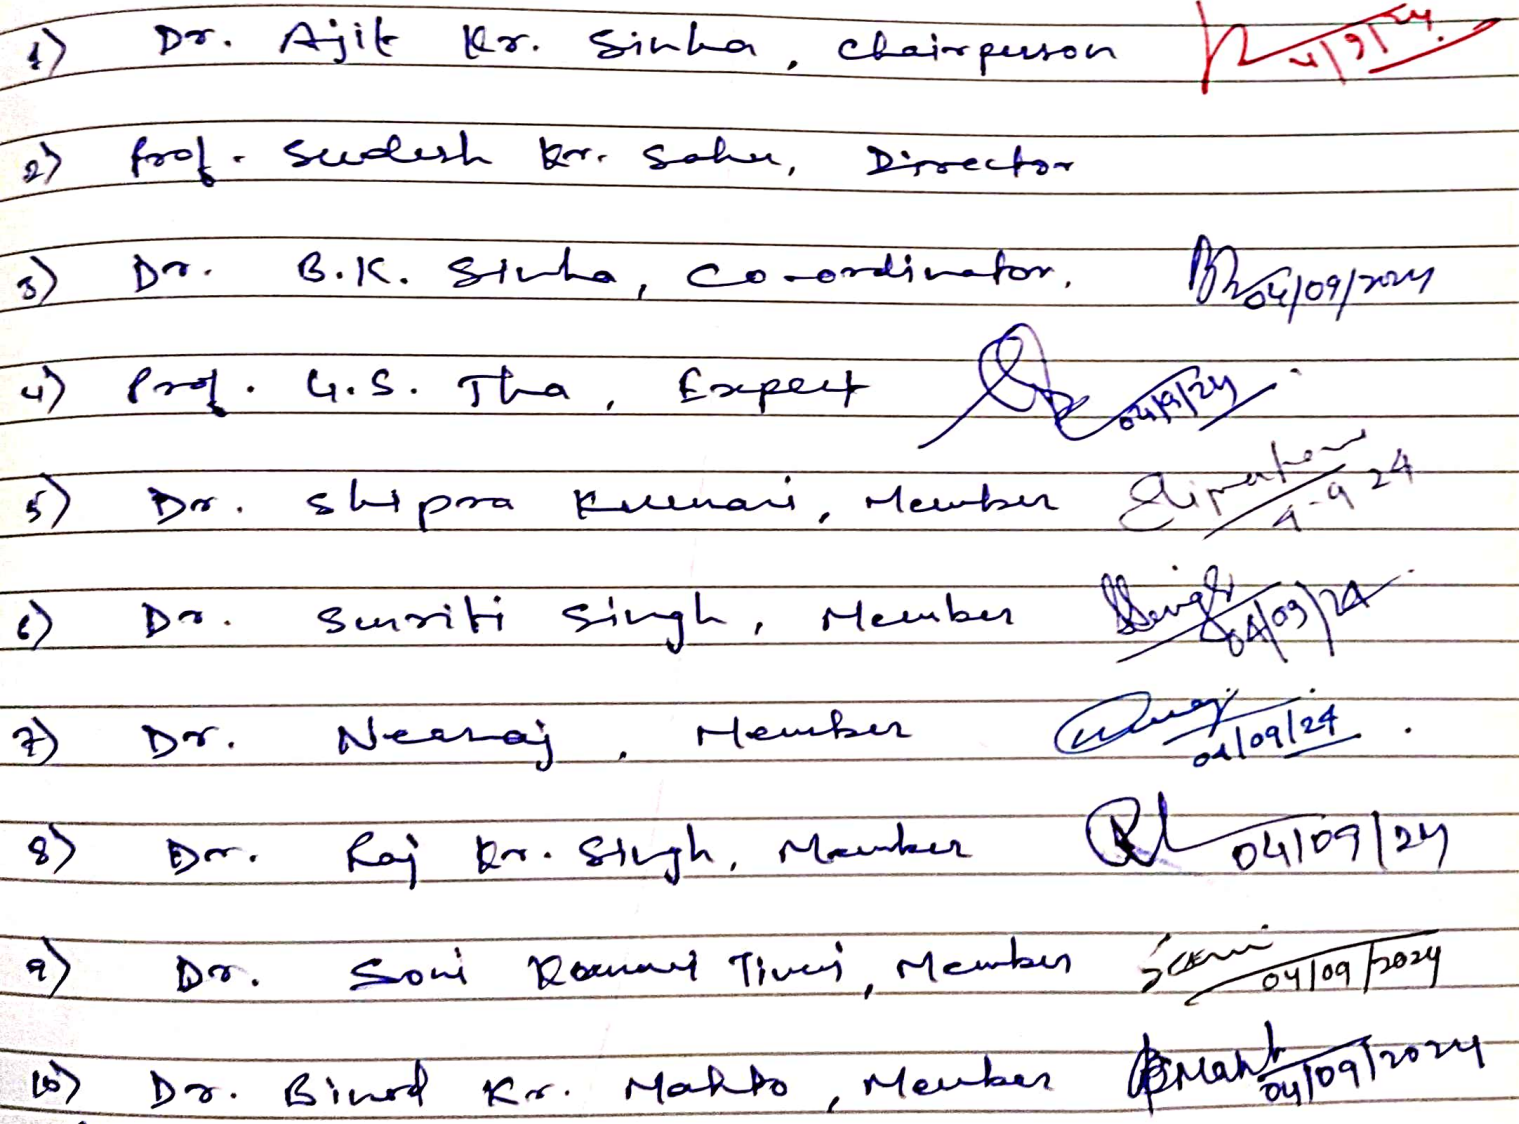 1) Dr. Ajit Kr. Sinha, Chairperson 4/9/24
2) Prof. Sudesh Kr. Sahu, Director
3) Dr. B.K. Sinha, Co-ordinator. 04/09/2024
4) Prof. G.S. Jha, Expert 04/9/24
5) Dr. Shipra Kumari, Member 4-9 24
6) Dr. Smriti Singh, Member Singh 04/09/24
7) Dr. Neeraj, Member 04/09/24
8) Dr. Raj Kr. Singh, Member 04/09/24
9) Dr. Soni Kumari Tiwari, Member Soni 04/09/2024
10) Dr. Binod Kr. Mahto, Member 04/09/2024